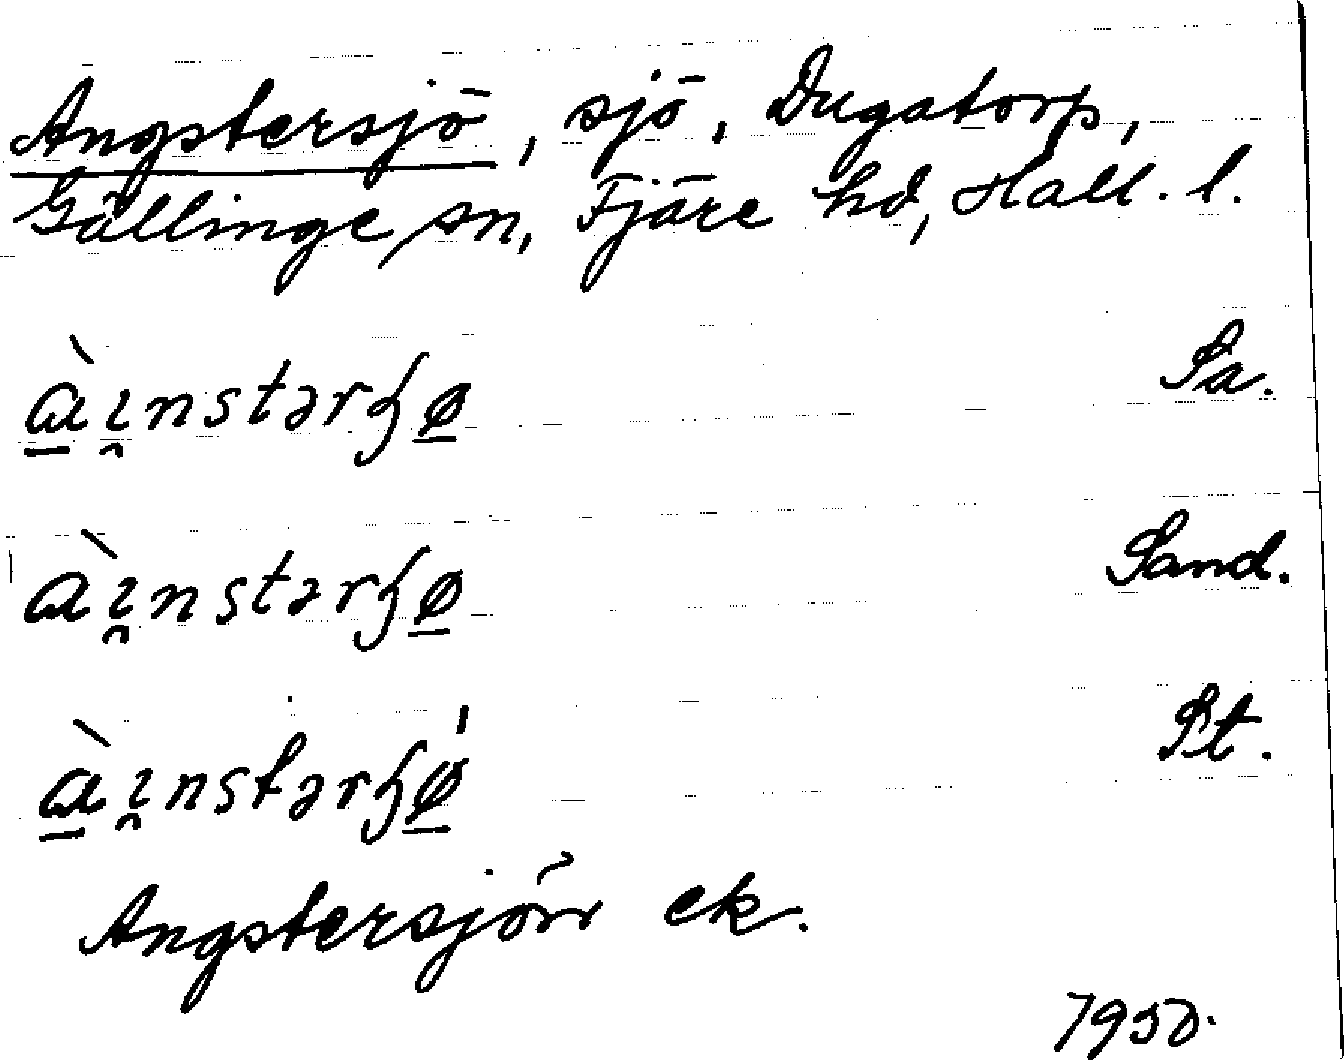 Angstersjö, sjö, Dugatorp,
Gällinge sn, Fjäre hd, Hall. l.
à̱ɩ̯nstərɧø̱ Sa.
àɩ̯nstərɧø̱ Sand.
à̱ɩ̯nstərɧǿ̱ St.
Angstersjön ek.
1950.